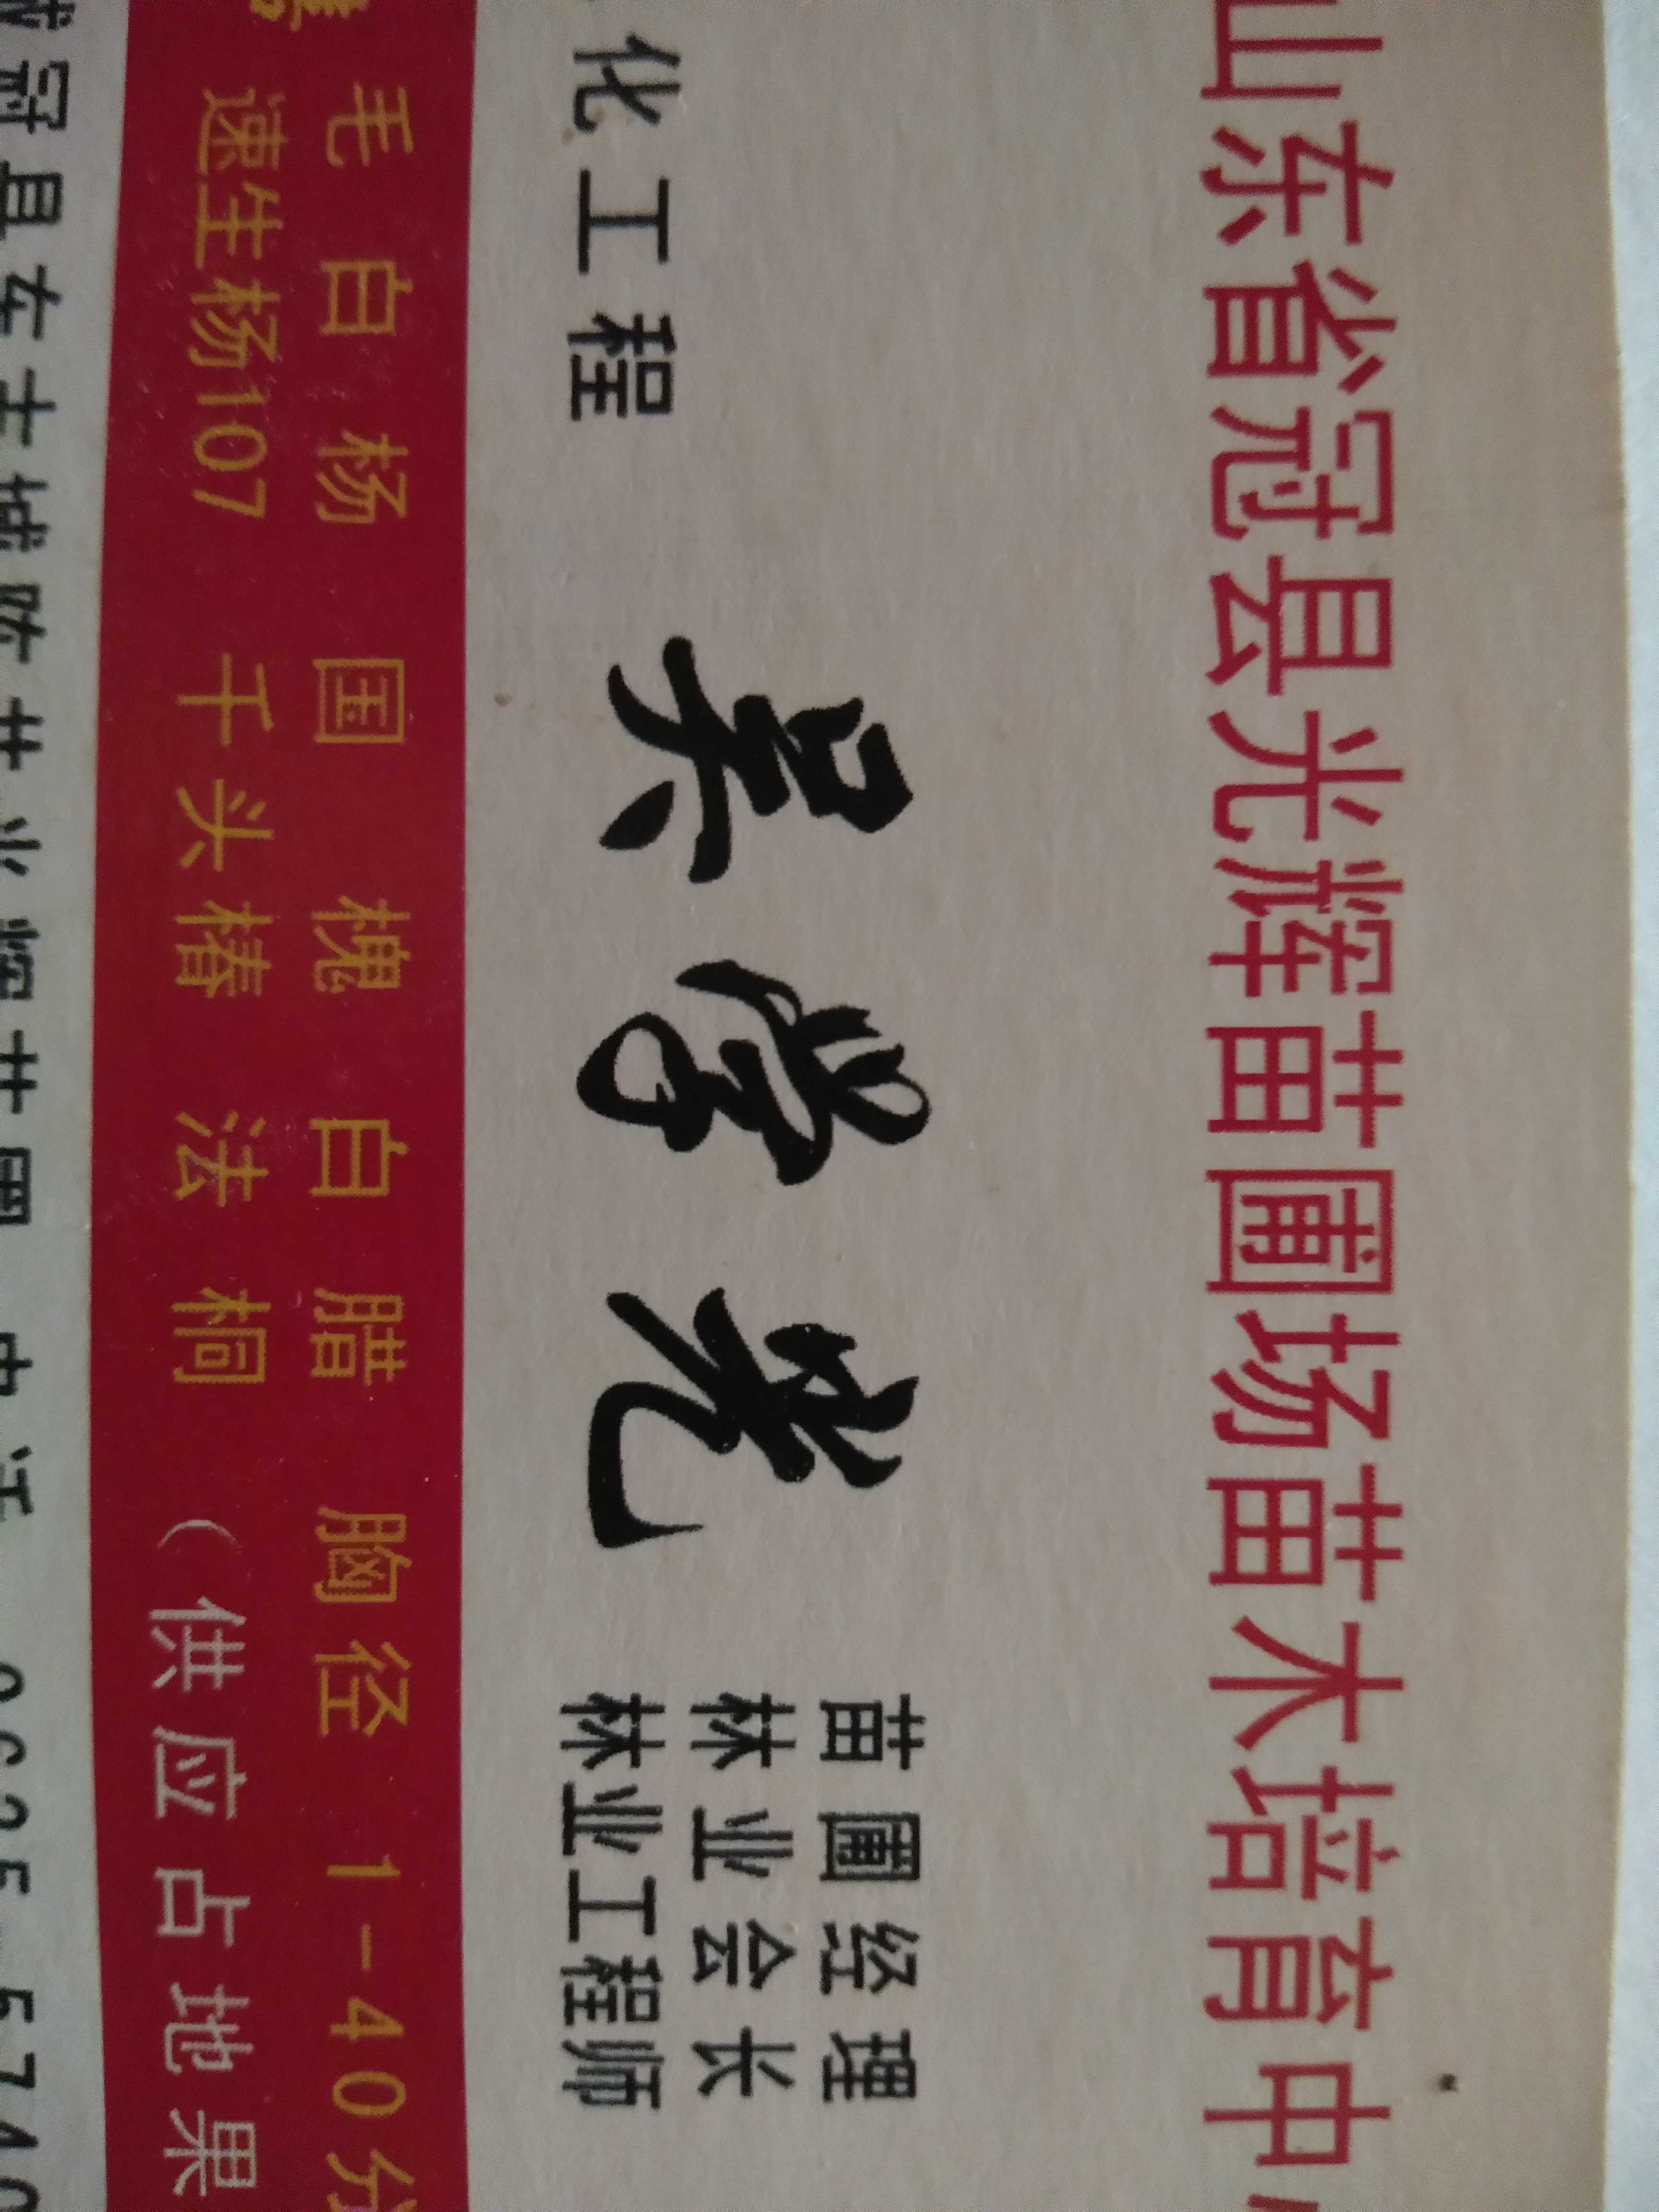 山东省冠县光辉苗圃场苗木培育中
苗圃经理
林业会长
化工程 吴 光 林业工程师
毛白杨 国槐 白腊 胸径 1-40分
速生杨107 千头椿 法桐 （供应占地果
冠县